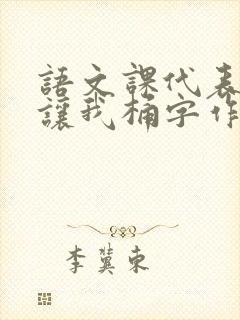 語文課代表
讓我桶字作
李冀東